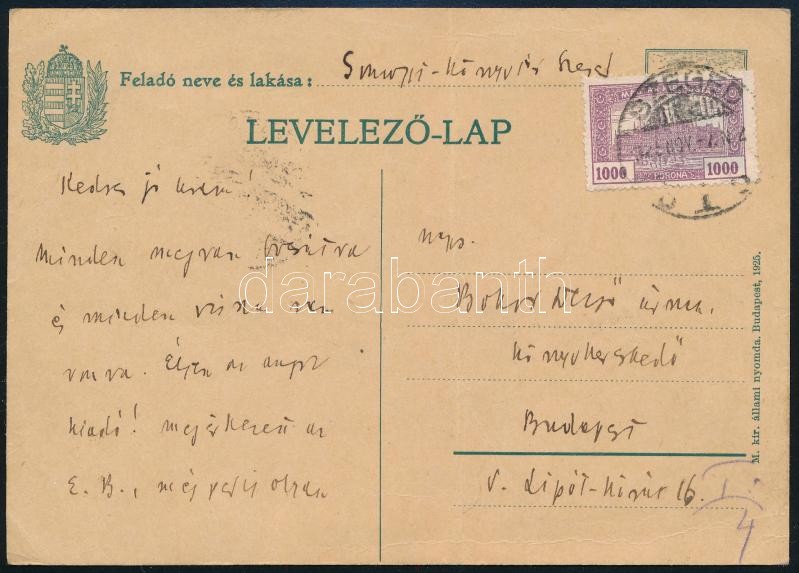 Feladó neve és lakása: Somogyi-Könyvtár Szeged
LEVELEZŐ-LAP
MAGYAR KIR. POSTA
SZEGED
1000 KORONA 1000
Kedves jó uram!
minden megvan
és minden vissza van
vonva. Éljen az
kiadó! megérkezett az
E. B., még pedig olyan
ngs.
Bokor Dezső úrnak
könyvkereskedő
Budapest
V. Lipót-körút 16. I.
4
M. kir. állami nyomda. Budapest, 1925.
darabanth